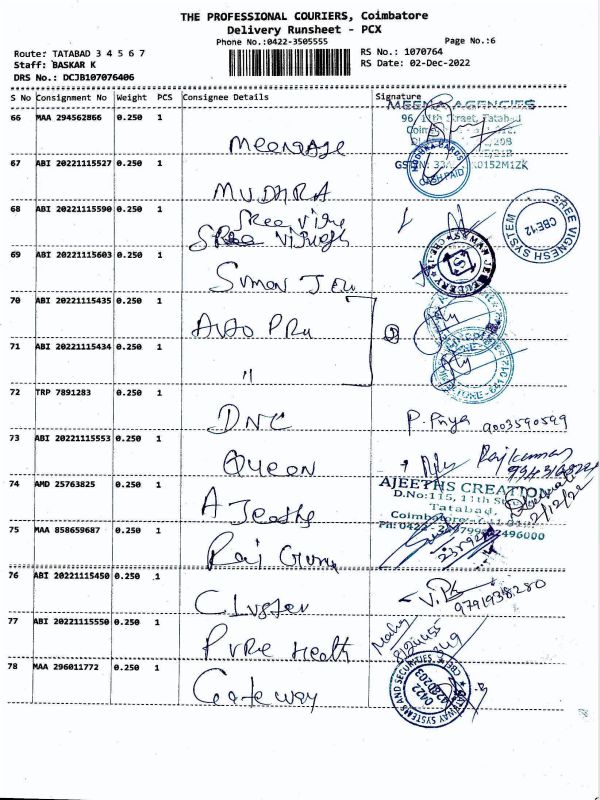 THE PROFESSIONAL COURIERS, Coimbatore
Delivery Runsheet - PCX
Phone No.:0422-3505555
Page No.:6
Route: TATABAD 3 4 5 6 7
Staff: BASKAR K
DRS No.: DCJB107076406
RS No.: 1070764
RS Date: 02-Dec-2022
S No Consignment No Weight PCS Consignee Details Signature
66 MAA 294562866 0.250 1
MEENA AGENCIES
96, 11th Street, Tatabad
67 ABI 20221115527 0.250 1 MUDHRA
MUDHRA CARDS
CASH PAID
68 ABI 20221115590 0.250 1 Sree Vignesh
SREE VIGNESH SYSTEM
CBE 12
69 ABI 20221115603 0.250 1 Suman Jew
SUMAN JEWELLERY
70 ABI 20221115435 0.250 1 Auto Pru
71 ABI 20221115434 0.250 1 "
72 TRP 7891283 0.250 1 DNC P. Priya 9003590599
73 ABI 20221115553 0.250 1 Queen Rajkumar
74 AMD 25763825 0.250 1 A Jeeths
AJEETHS CREATION
D.No:115, 11th Street
Tatabad,
2/12/22
75 MAA 858659687 0.250 1 Raj Guru
76 ABI 20221115450 0.250 1 Cluster 9791938280
77 ABI 20221115550 0.250 1 Pure Health
78 MAA 296011772 0.250 1 Gateway
GATEWAY SYSTEMS AND SECURITIES
0422
4280203